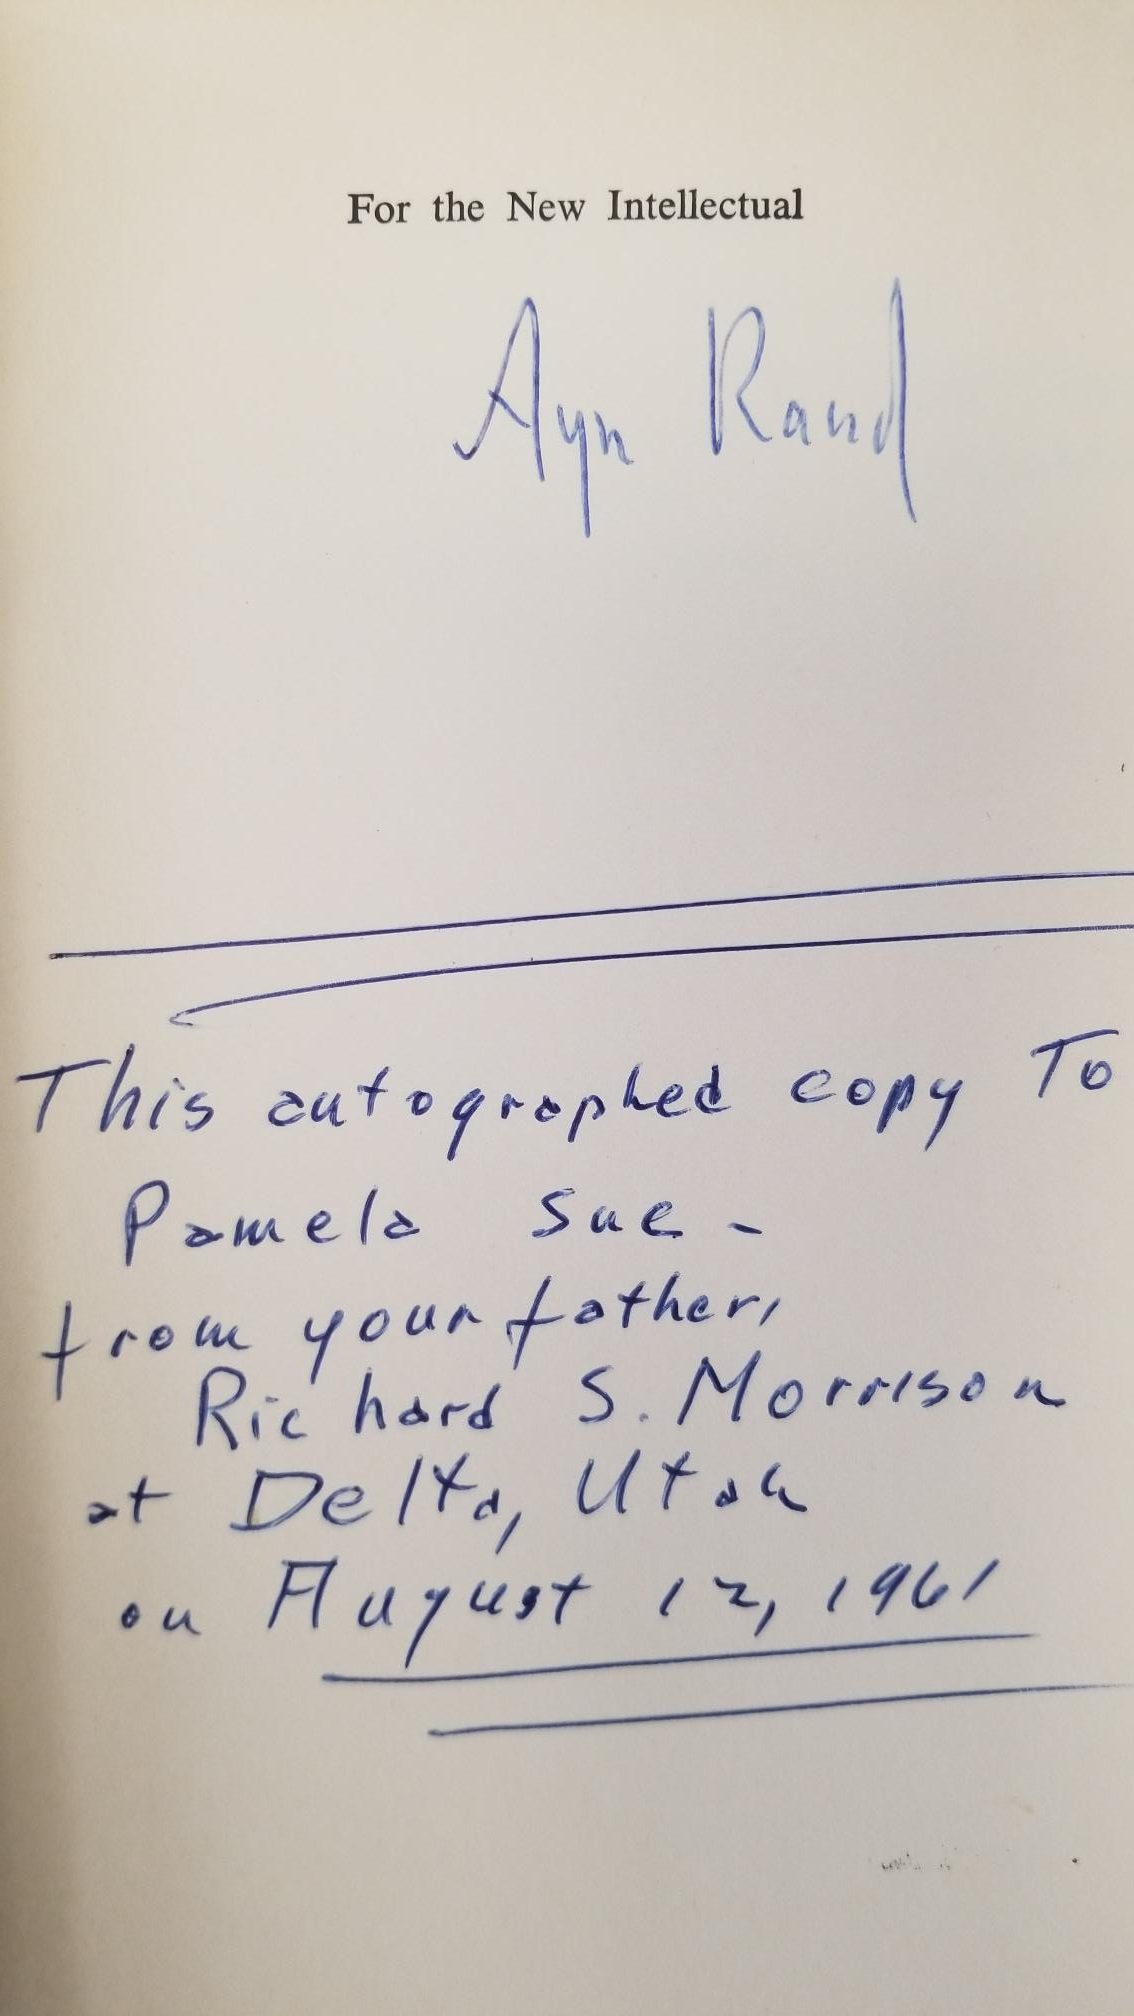 For the New Intellectual
Ayn Rand
This autographed copy To
Pamela Sue -
from your father,
Richard S. Morrison
at Delta, Utah
on August 12, 1961